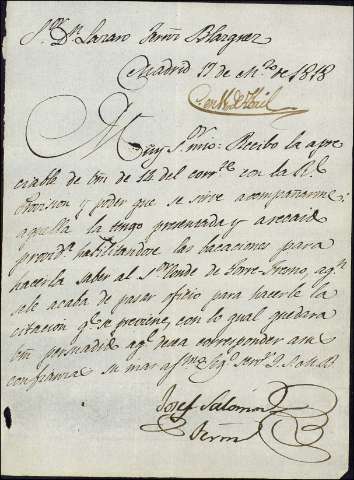 S.r D.n Lazaro Blazquez
Madrid 17 de M.zo de 1818
Muy S.r mio: Recibo la apre-
ciable de Vm de 14 del corr.te con la R.l
Provision y poder que se sirve acompañarme;
aquella la tengo presentada y a recaido
provid.a habilitandose las bacaciones para
hacerla saber al S.or Conde de Torre-Fresno, a q.n
sele acaba de pasar oficio para hacerle la
citacion q.e se previene, con lo qual quedara
Vm persuadido a q.e corresponder a su
confianza su mas af.mo Seg.o Serv.r Q. S. M. B.
Josef Salomon